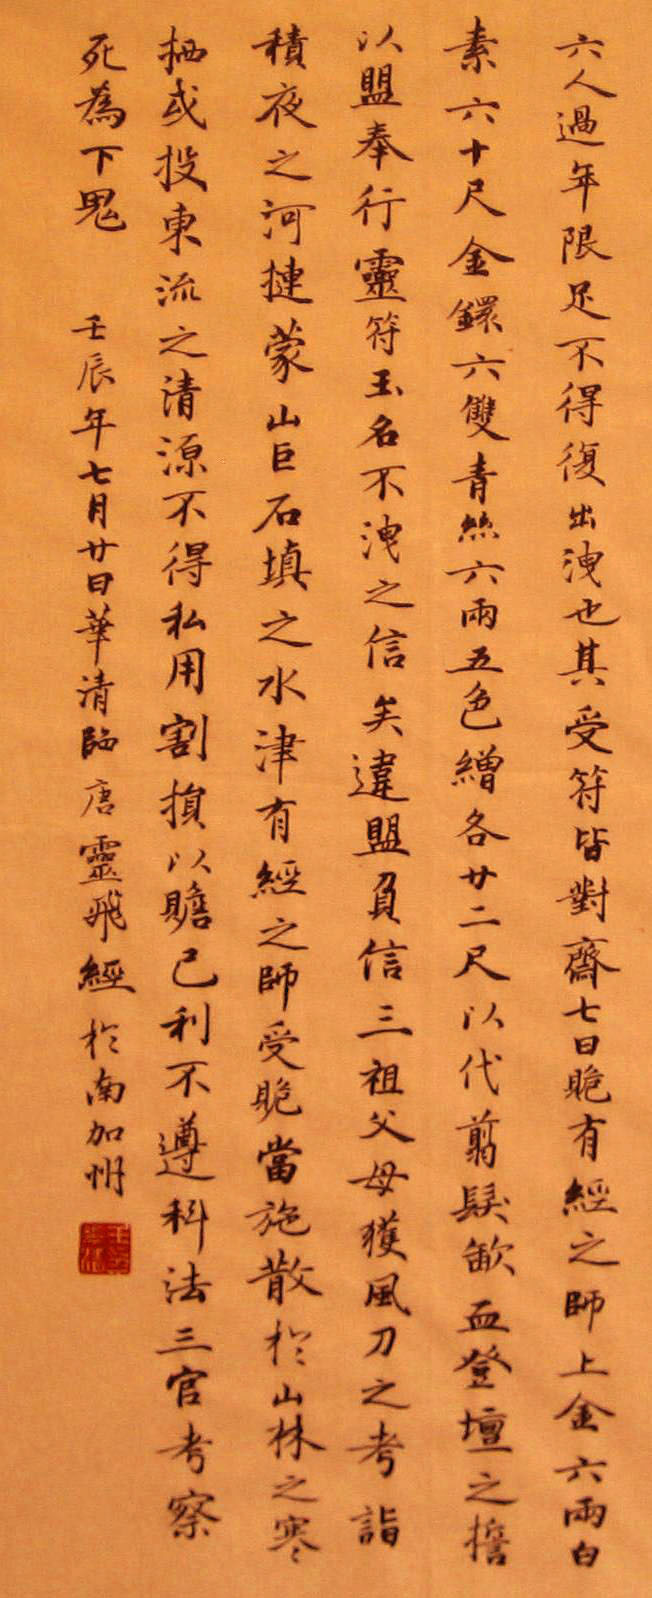 六人過年限足不得復出洩也其受符皆對齋七日賧有經之師上金六兩白
素六十尺金鐶六雙青絲六兩五色繒各廿二尺以代翦髮歃血登壇之擔
以盟奉行靈符玉名不洩之信矣違盟負信三祖父母獲風刀之考詣
積夜之河摙蒙山巨石填之水津有經之師受賧當施散於山林之寒
栖或投東流之清源不得私用割損以贍己利不遵科法三官考察
死為下鬼 壬辰年七月廿日華清臨唐靈飛經於南加州